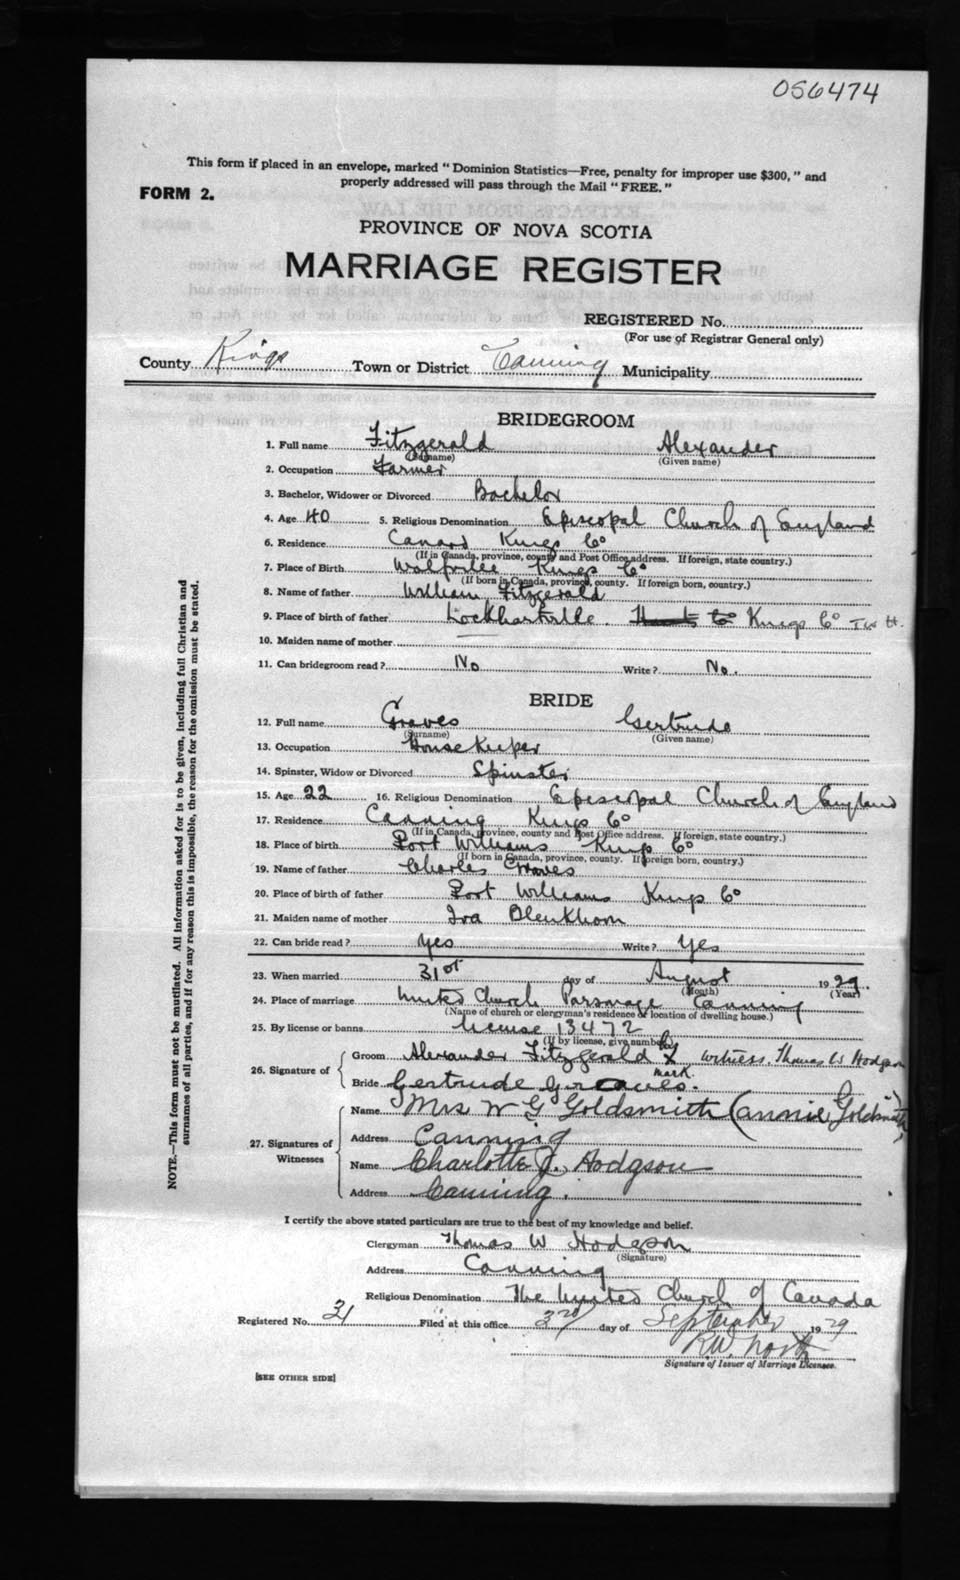 056474
This form if placed in an envelope, marked "Dominion Statistics—Free, penalty for improper use $300," and
properly addressed will pass through the Mail "FREE."
FORM 2.
PROVINCE OF NOVA SCOTIA
MARRIAGE REGISTER
REGISTERED No.
(For use of Registrar General only)
County Kings Town or District Canning Municipality
BRIDEGROOM
1. Full name Fitzgerald Alexander
(Surname) (Given name)
2. Occupation Farmer
3. Bachelor, Widower or Divorced Bachelor
4. Age 40 5. Religious Denomination Episcopal Church of England
6. Residence Canard Kings Co
(If in Canada, province, county and Post Office address. If foreign, state country.)
7. Place of Birth Wolfville Kings Co
(If born in Canada, province, county. If foreign born, country.)
8. Name of father William Fitzgerald
9. Place of birth of father Lockhartville. Hants Co Kings Co T W H.
10. Maiden name of mother
11. Can bridegroom read? No Write? No.
BRIDE
12. Full name Graves Gertrude
(Surname) (Given name)
13. Occupation House Keeper
14. Spinster, Widow or Divorced Spinster
15. Age 22 16. Religious Denomination Episcopal Church of England
17. Residence Canning Kings Co
(If in Canada, province, county and Post Office address. If foreign, state country.)
18. Place of birth Port Williams Kings Co
(If born in Canada, province, county. If foreign born, country.)
19. Name of father Charles Graves
20. Place of birth of father Port Williams Kings Co
21. Maiden name of mother Iva Blenkhorn
22. Can bride read? Yes Write? Yes
23. When married 31st day of August 1929.
(Month) (Year)
24. Place of marriage United Church Parsonage Canning
(Name of church or clergyman's residence or location of dwelling house.)
25. By license or banns license 13472
(If by license, give number)
26. Signature of
Groom Alexander Fitzgerald his X mark. witness. Thomas W Hodgson
Bride Gertrude Graves.
27. Signatures of Witnesses
Name Mrs W G Goldsmith (Annie Goldsmith)
Address Canning
Name Charlotte J. Hodgson
Address Canning.
I certify the above stated particulars are true to the best of my knowledge and belief.
Clergyman Thomas W Hodgson
(Signature)
Address Canning
Religious Denomination The United Church of Canada
Registered No. 31 Filed at this office 3rd day of September 1929
R.W. North
Signature of Issuer of Marriage Licenses.
[SEE OTHER SIDE]
NOTE.—This form must not be mutilated. All information asked for is to be given, including full Christian and
surnames of all parties, and if for any reason this is impossible, the reason for the omission must be stated.